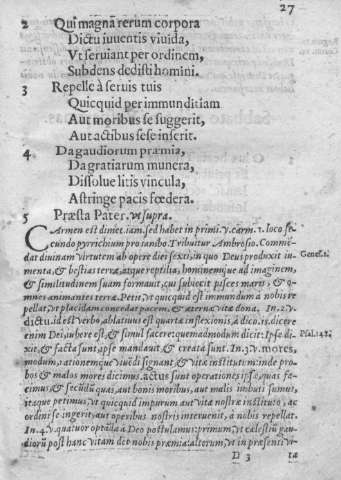 27
2 Qui magna rerum corpora
Dictu iuuentis viuida,
Vt seruiant per ordinem,
Subdens dedisti homini.
3 Repelle à seruis tuis
Quicquid per immunditiam
Aut moribus se suggerit,
Aut actibus sese inserit.
4 Da gaudiorum præmia,
Da gratiarum munera,
Dissolue litis vincula,
Astringe pacis fœdera.
5 Præsta Pater. vt supra.
CArmen est dimet. iam. sed habet in primi. v. carm. 1. loco se-
cundo pyrrichium pro iambo. Tribuitur Ambrosio. Commē-
dat diuinam virtutem ab opere diei sexti, in quo Deus produxit iu-
menta, & bestias terræ, atque reptilia, hominemque ad imaginem,
& similitudinem suam formauit, cui subiecit pisces maris, & o-
mnes animantes terræ. Petit, vt quicquid est immundum à nobis re
pellat, vt placidam concedat pacem, & æterna vitæ dona. In. 2. v.
dictu, id est verbo, ablatiuus est quartæ inflexionis, à dico, is, dicere
enim Dei, iubere est, & simul facere: quemadmodum dicit: Ipse di-
xit, & facta sunt, ipse mandauit, & creata sunt. In. 3. v. mores,
modum, rationemque viuēdi signant, & vitæ institutum: inde pro-
bos & malos mores dicimus. actus sunt operationes ipsæ, quas fa-
cimus, & secūdū quas, aut bonis moribus, aut malis imbuti sumus,
itaque petimus, vt quicquid impurum aut vitæ nostræ instituto, ac
ordini se ingerit, aut operibus nostris interuenit, à nobis repellat.
In. 4. v. quatuor optāda à Deo postulamus: primum, vt cælestiū gau-
diorū post hanc vitam det nobis præmia: alterum, vt in præsenti vi-
D 3 ta
Genes. 1.
Psal. 148.